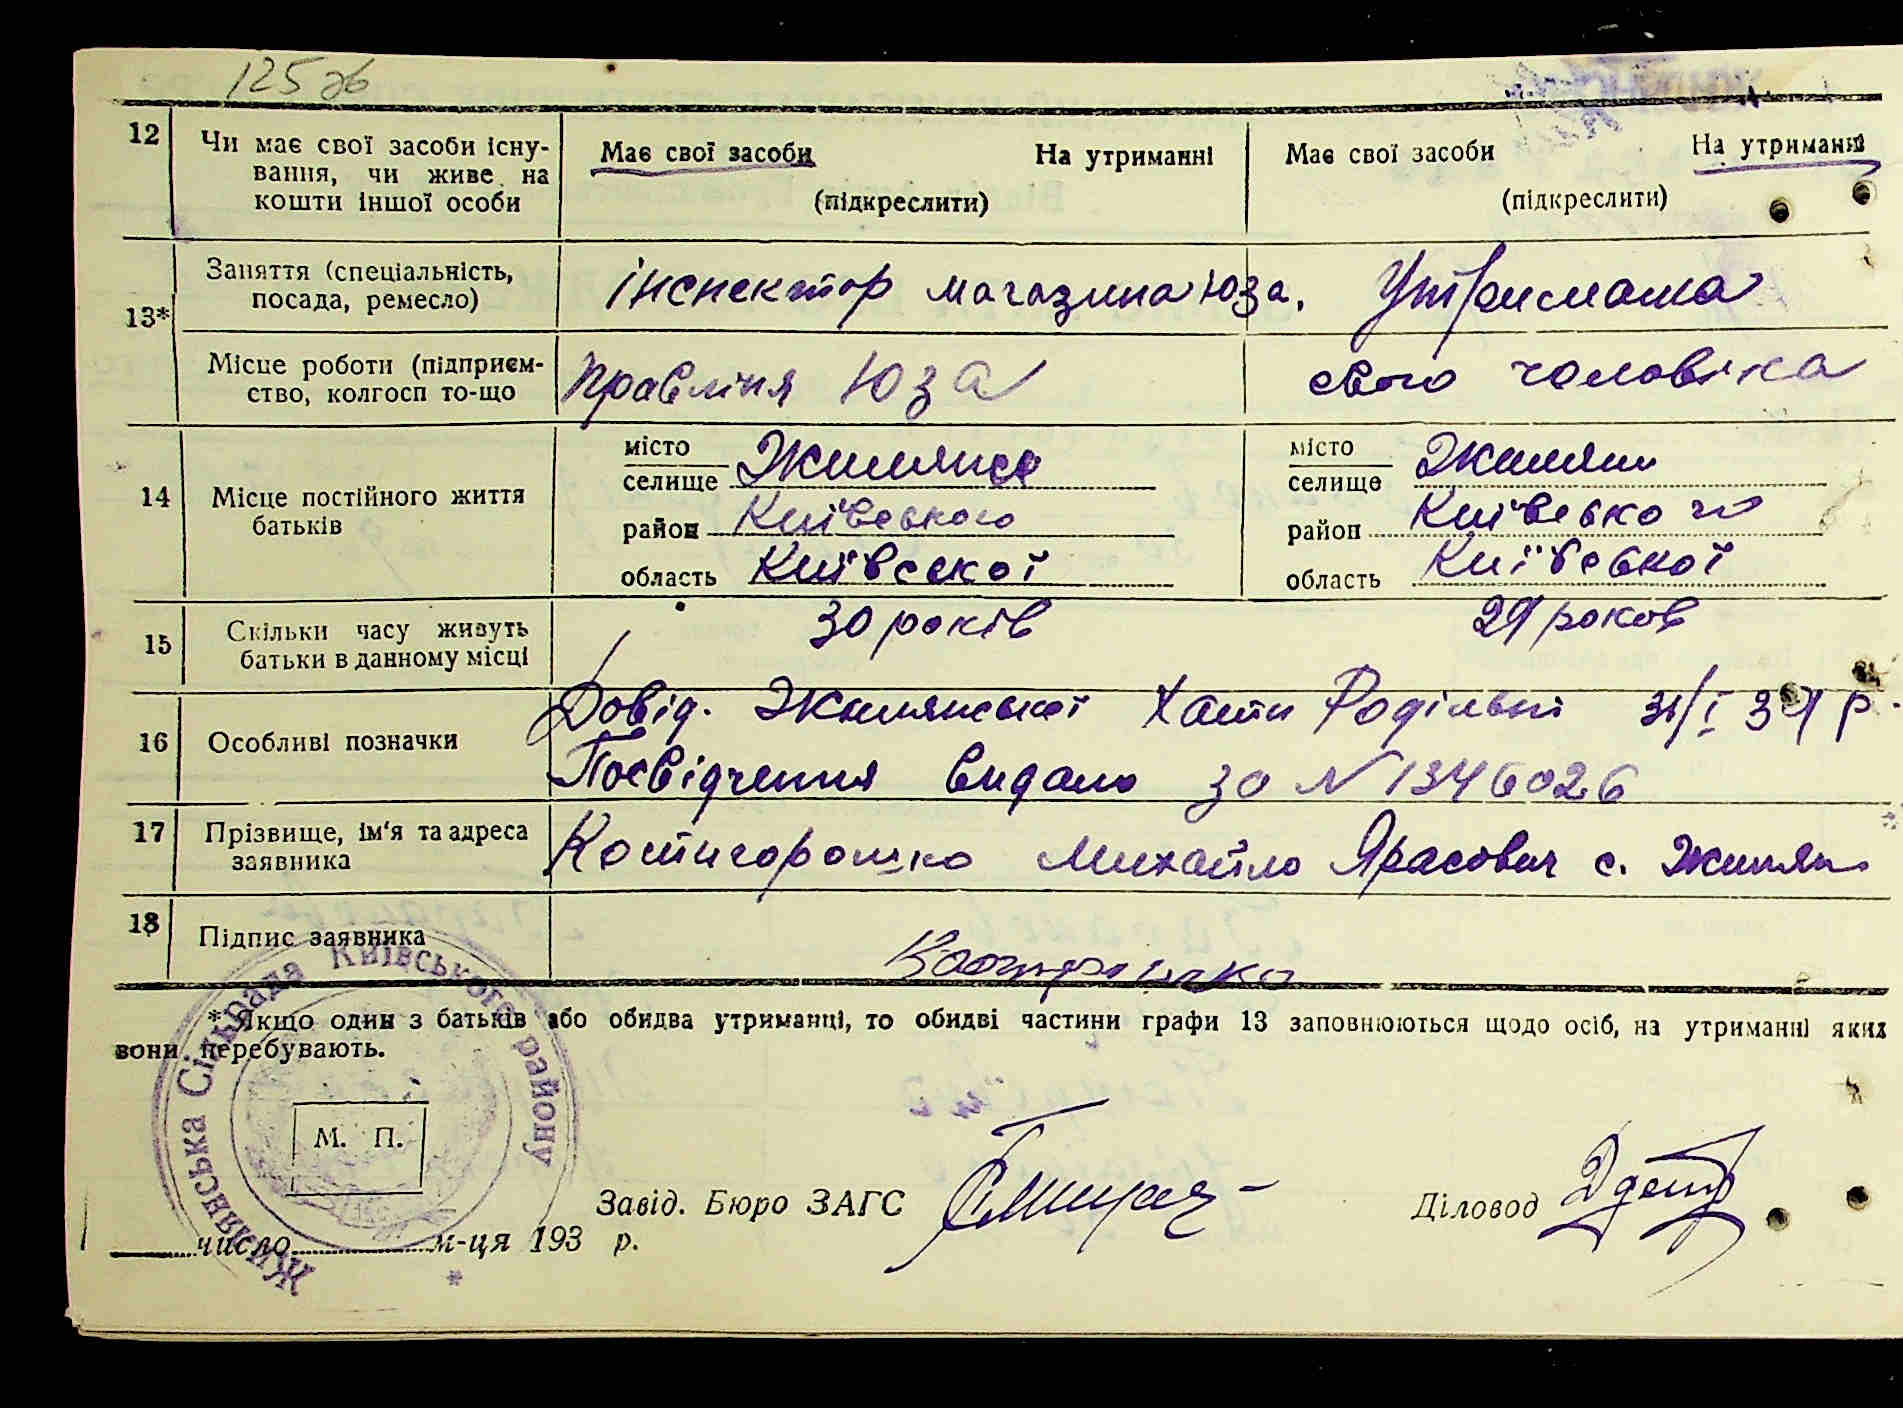 125 зв
12 Чи має свої засоби існу- Має свої засоби На утриманні Має свої засоби На утриманні
вання, чи живе на
кошти іншої особи (підкреслити) (підкреслити)
13* Заняття (спеціальність, інспектор магазина ЮЗа. Утрисмама
посада, ремесло)
Місце роботи (підприєм- Правліня ЮЗа свого чоловіка
ство, колгосп то-що
14 Місце постійного життя
батьків
місто
селище Жиляни
район Київського
область Київської
місто
селище Жиляни
район Київського
область Київської
15 Скільки часу живуть 30 років 29 роков
батьки в данному місці
16 Особливі позначки Довід. Жилянської Хати Родільні 31/I 39 р.
Посвідчення видано за N 1346026
17 Прізвище, ім'я та адреса Котигорошко Михайло Ярасович с. Жиляни
заявника
18 Підпис заявника Котигорошко
* Якщо один з батьків або обидва утриманці, то обидві частини графи 13 заповнюються щодо осіб, на утриманні яких
вони перебувають.
Жилянська Сільрада Київського району
М. П.
Завід. Бюро ЗАГС
Діловод
число м-ця 193 р.